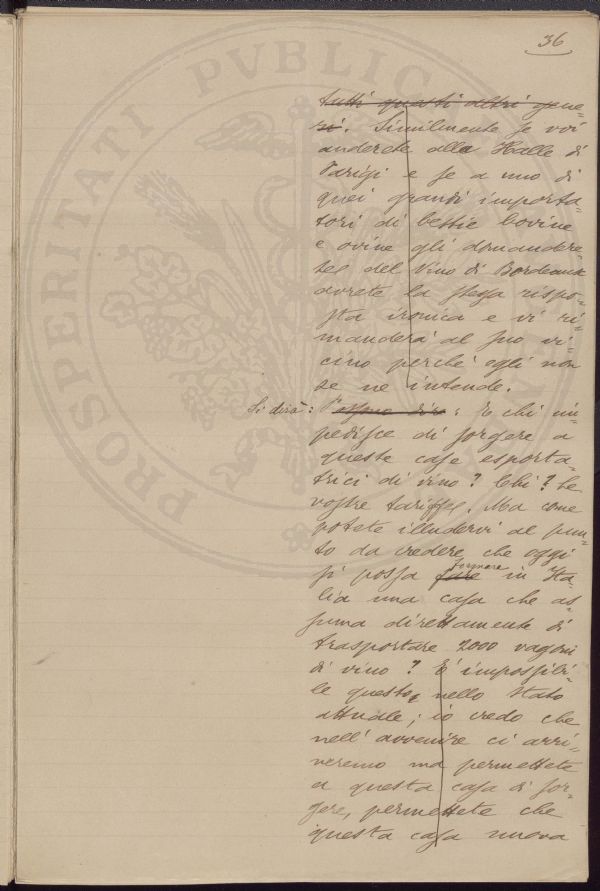 36
tutti questi altri gene-
ri. Similmente se voi
anderete alla Halle di
Parigi e se a uno di
quei grandi importa-
tori di bestie bovine
e ovine gli domandere-
te del Vino di Bordeaux
avrete la stessa rispo-
sta ironica e vi ri-
manderà al suo vi-
cino perchè egli non
se ne intende.
Si dirà: Possono dire: E chi im-
pedisce di sorgere a
queste case esporta-
trici di vino? Chi? Le
vostre tariffe. Ma come
potete illudervi al pun-
to da credere che oggi
formare
si possa fare in Ita-
lia una casa che as-
suma direttamente di
trasportare 2000 vagoni
di vino? È impossibi-
le questo, nello stato
attuale; io credo che
nell'avvenire ci arri-
veremo ma permettete
a questa casa di sor-
gere, permettete che
questa casa nuova
PROSPERITATI PVBLICAE